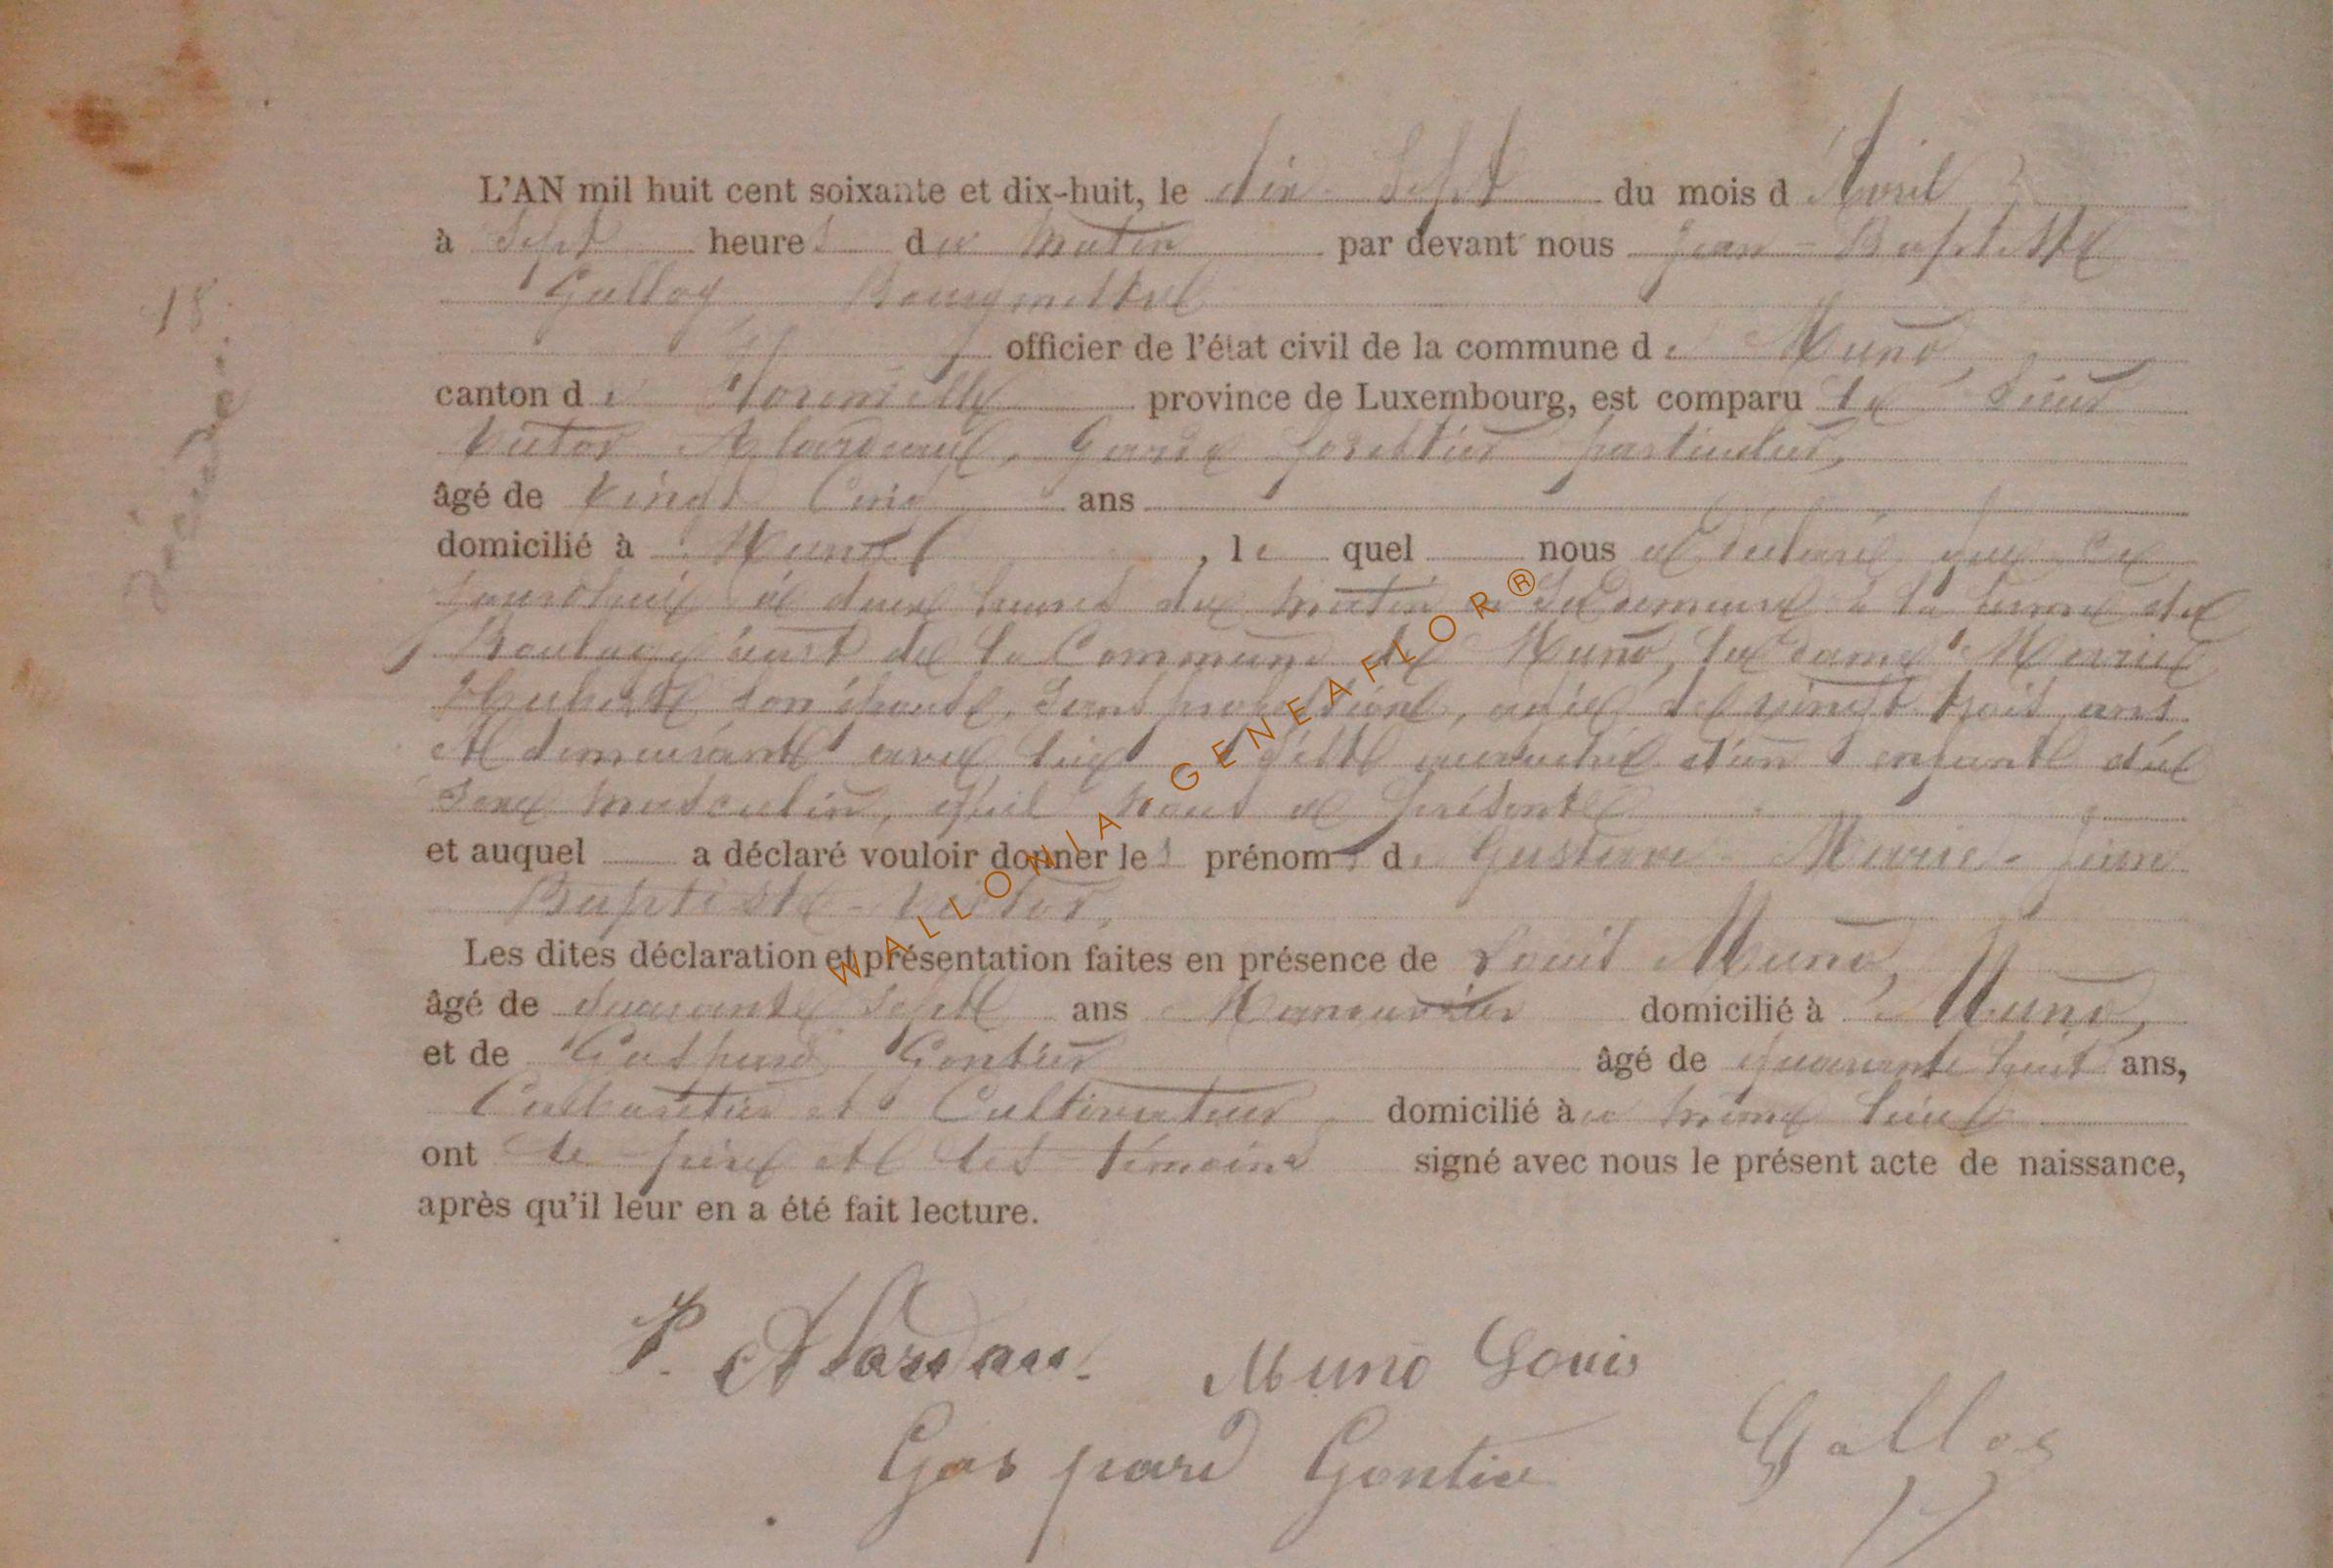 18.
L'AN mil huit cent soixante et dix-huit, le dix-Sept du mois d'Avril
à Sept heures du Matin par devant nous Jean-Baptiste
Bourgmestre
officier de l'état civil de la commune de Muno,
canton de Florenville province de Luxembourg, est comparu le Sieur
Victor Alardeau, Garde forestier particulier,
âgé de Vingt Cinq ans
domicilié à Muno, le quel nous a déclaré que ce
jourd'hui à deux heures du Matin en Sa demeure à la ferme de
de la Commune de Muno, la dame Marie
son épouse, Sans profession, agée de vingt trois ans
et demeurant avec lui, s'est accouchée d'un enfant du
Sexe Masculin, qu'il nous a présenté
et auquel a déclaré vouloir donner les prénoms de Gustave-Marie-Jean
Baptiste-Victor,
Les dites déclaration et présentation faites en présence de Louis Muno,
âgé de quarante Sept ans Manouvrier domicilié à Muno,
et de Gaspard Gontier âgé de quarante huit ans,
Cabaretier et Cultivateur, domicilié au même lieu
ont le père et les témoins signé avec nous le présent acte de naissance,
après qu'il leur en a été fait lecture.
Muno Louis
Gaspard Gontier
WALLONIA GENEAFLOR®